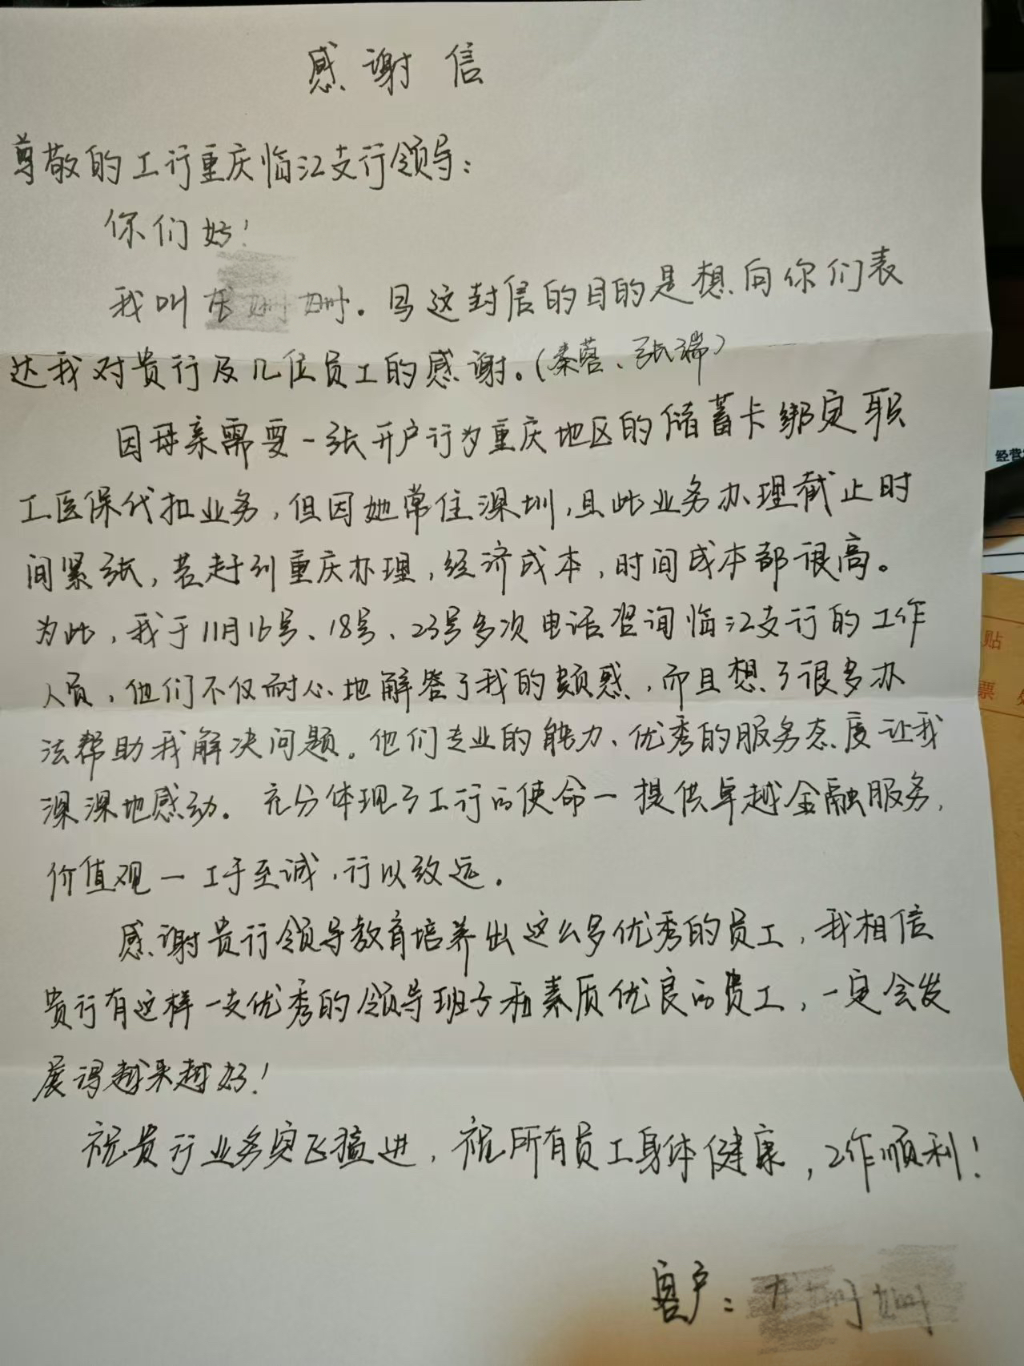 感谢信
尊敬的工行重庆临江支行领导：
你们好！
我叫 。写这封信的目的是想向你们表
达我对贵行及几位员工的感谢。（秦蓉、张瑞）
因母亲需要一张开户行为重庆地区的储蓄卡绑定职
工医保代扣业务，但因她常住深圳，且此业务办理截止时
间紧张，若赶到重庆办理，经济成本，时间成本都很高。
为此，我于11月16号、18号、23号多次电话咨询临江支行的工作
人员，他们不仅耐心地解答了我的疑惑，而且想了很多办
法帮助我解决问题。他们专业的能力、优秀的服务态度让我
深深地感动。充分体现了工行的使命一提供卓越金融服务，
价值观一工于至诚，行以致远。
感谢贵行领导教育培养出这么多优秀的员工，我相信
贵行有这样一支优秀的领导班子和素质优良的员工，一定会发
展得越来越好！
祝贵行业务突飞猛进，祝所有员工身体健康，工作顺利！
客户：
经营
贴
票